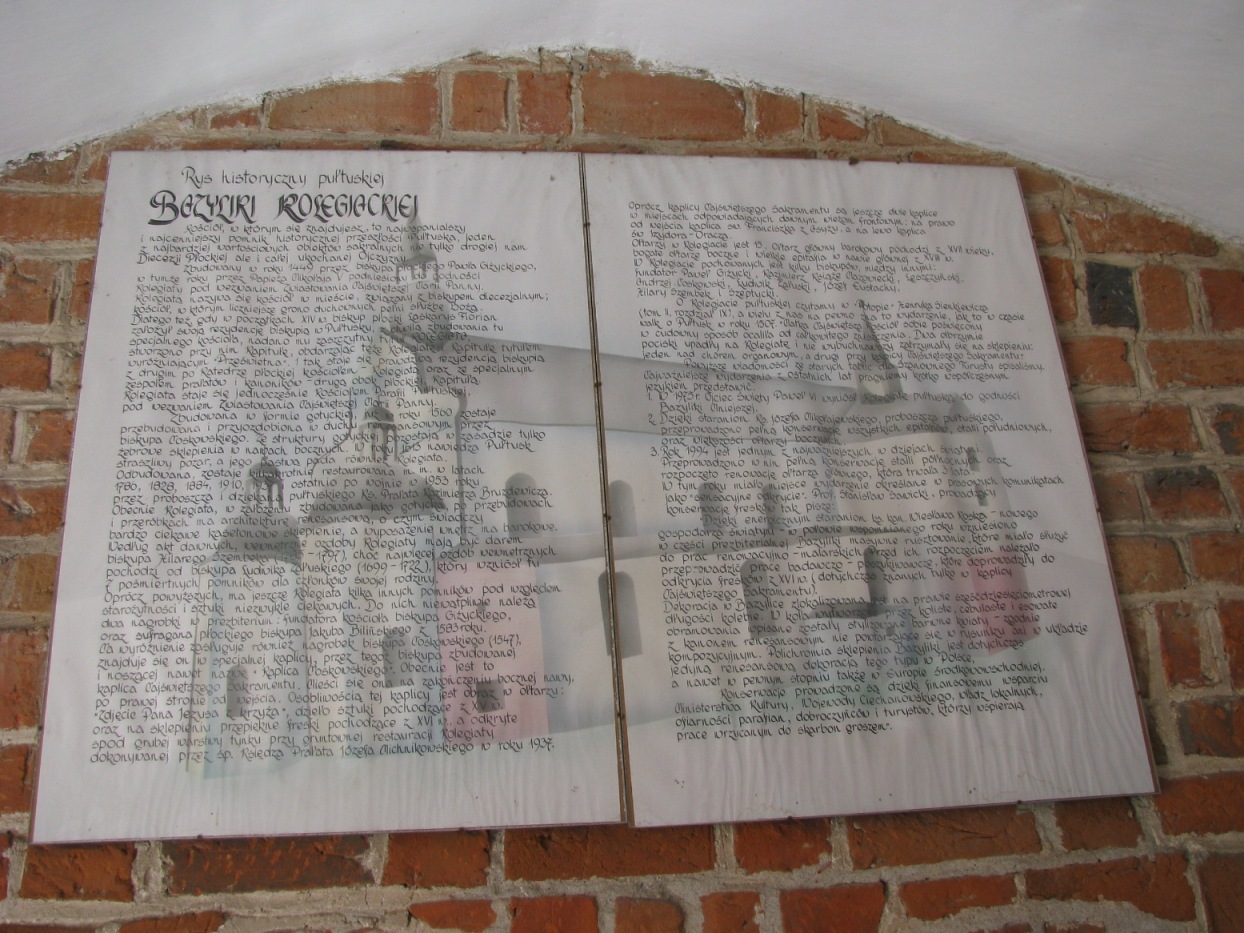 Rys historyczny pułtuskiej
BAZYLIKI KOLEGIACKIEJ
Kościół, w którym się znajdujesz, to najwspanialszy
i najcenniejszy pomnik historycznej przeszłości Pułtuska, jeden
z najbardziej wartościowych obiektów sakralnych nie tylko drogiej nam
Diecezji Płockiej ale i całej ukochanej Ojczyzny.
Zbudowany w roku 1449 przez biskupa Pawła Giżyckiego,
w tymże roku przez Papieża Mikołaja V podniesiony do godności
Kolegiaty pod wezwaniem Zwiastowania Najświętszej Marii Panny.
Kolegiatą nazywa się kościół w mieście, związany z biskupem diecezjalnym;
kościół, w którym liczniejsze grono duchownych pełni służbę Bożą.
Dlatego też, gdy w początkach XIV w. biskup płocki Laskarys Florian
założył swoją rezydencję biskupią w Pułtusku, nadano mu
specjalnego kościoła, nadano mu zaszczytny tytuł Kolegiaty
stworzono przy nim Kapitułę, obdarzając też Kolegiatę i Kapitułę tytułem
wyróżniającym "Prześwietna". I tak stoje się pracowitą rezydencją biskupią
z drugim po Katedrze płockiej kościołem - Kolegiatą oraz ze specjalnym
zespołem prałatów i kanoników - drugą obok płockiej Kapitułą.
Kolegiata staje się jednocześnie kościołem Parafii Pułtuskiej
pod wezwaniem Zwiastowania Najświętszej Marii Panny.
Zbudowana w formie gotyckiej, w roku 1560 zostaje
przebudowana i przyozdobiona w duchu renesansowym przez
biskupa Noskowskiego. Ze struktury gotyckiej zostają w zasadzie tylko
żebrowe sklepienia w nawach bocznych. W roku 1613 nawiedza Pułtusk
straszliwy pożar, a jego pastwą pada również Kolegiata.
Odbudowana, zostaje kilkakrotnie restaurowana m. in. w latach
1780, 1828, 1884, 1910, 1911 i ostatnio po wojnie w 1953 roku
przez Proboszcza i dziekana pułtuskiego Ks. Prałata Kazimierza Bruzdowicza.
Obecnie Kolegiata, w założeniu zbudowana jako gotycka, po przebudowach
i przeróbkach ma architekturę renesansową, o czym świadczy
bardzo ciekawe kasetonowe sklepienie, a wyposażenie wnętrz ma barokowe.
Według akt dawnych, wewnętrzne ozdoby Kolegiaty mają być darem
biskupa Hilarego Szembeka ( -1797), choć najwięcej ozdób wewnętrznych
pochodzi od biskupa Ludwika Załuskiego (1699 - 1722), który wzniósł tu
7 pośmiertnych pomników dla członków swojej rodziny.
Oprócz powyższych, ma jeszcze Kolegiata kilka innych pomników pod względem
starożytności i sztuki niezwykle ciekawych. Do nich niewątpliwie należą
dwa nagrobki w prezbiterium: fundatora kościoła biskupa Giżyckiego,
oraz sufragana płockiego biskupa Jakuba Bilińskiego z 1583 roku.
Na wyróżnienie zasługuje również nagrobek biskupa Noskowskiego (1547),
znajduje się on w specjalnej kaplicy, przez tego biskupa zbudowanej,
i noszącej nawet nazwę - "Kaplica Noskowskiego". Obecnie jest to
kaplica Najświętszego Sakramentu. Mieści się ona na zakończeniu bocznej nawy,
po prawej stronie od wejścia. Osobliwością tej kaplicy jest obraz w ołtarzu:
"Zdjęcie Pana Jezusa z Krzyża", dzieło sztuki pochodzące z XVI w.
oraz na sklepieniu przepiękne freski pochodzące z XVI w, a odkryte
spod grubej warstwy tynku przy gruntownej restauracji Kolegiaty
dokonywanej przez śp. Księdza Prałata Józefa Michnikowskiego w roku 1937.
Oprócz kaplicy Najświętszego Sakramentu są jeszcze dwie kaplice
w miejscach odpowiadających dawnym wieżom frontowym: na prawo
od wejścia kaplica św. Franciszka z Asyżu, a na lewo kaplica
św. Izydora - Oracza.
Ołtarzy w Kolegiacie jest 15. Ołtarz główny barokowy pochodzi z XVII wieku,
bogate ołtarze boczne i wielkie epitafia w nawie głównej z XVIII w.
W Kolegiacie pochowanych jest kilku biskupów, między innymi:
fundator Paweł Giżycki, Książę Olszanecki, Leszczyński,
Andrzej Noskowski, Ludwik Załuski, Józef Eustachy,
Hilary Szembek i Szeptycki.
O Kolegiacie pułtuskiej czytamy w "Potopie" Henryka Sienkiewicza
(tom II, rozdział IV), a wielu z nas na pewno zna to wydarzenie, jak to w czasie
walk o Pułtusk w roku 1807 "Matka Najświętsza kościół sobie poświęcony
w cudowny sposób ocaliła od całkowitego zburzenia. Dwa olbrzymie
pociski upadły na Kolegiatę i nie wybuchnąwszy zatrzymały się na sklepieniu:
jeden nad chórem organowym, a drugi przy kaplicy Najświętszego Sakramentu."
Powyższe wiadomości ze starych tablic dla Szanownego Turysty spisaliśmy.
Najważniejsze wydarzenia ostatnich lat pragniemy krótko współczesnym
językiem przedstawić.
1. W 1975r. Ojciec Święty Paweł VI wyniósł Kolegiatę Pułtuską do godności
Bazyliki Mniejszej.
2. Dzięki staraniom Ks. Józefa Mikołajewskiego, proboszcza pułtuskiego,
przeprowadzono pełną konserwację wszystkich epitafiów, stalli południowych,
oraz większości ołtarzy bocznych.
3. Rok 1994 jest jednym z najważniejszych w dziejach świątyni.
Przeprowadzono w nim pełną konserwację stalli północnych oraz
rozpoczęto renowację ołtarza głównego, która trwała 3 lata.
W tym roku miało miejsce wydarzenie określane w prasowych komunikatach
jako "sensacyjne odkrycie". Prof. Stanisław Sawicki, prowadzący
konserwację fresków tak pisze:
"Dzięki energicznym staraniom ks. kan. Wiesława Koska - nowego
gospodarza świątyni - w połowie wspomnianego roku wzniesiono
w części prezbiterialnej Bazyliki masywne rusztowanie, które miało służyć
do prac renowacyjno - malarskich. Przed ich rozpoczęciem należało
przeprowadzić prace badawczo - poszukiwawcze, które doprowadziły do
odkrycia fresków z XVI w. (dotychczas znanych tylko w kaplicy
Najświętszego Sakramentu).
Dekoracja w Bazylice zlokalizowana jest na prawie sześćdziesięciometrowej
długości kolebie w kolorowe pasy, przez koliste, cebulaste i owate
obramowania opisane zostały stylizacje barwne kwiaty - zgodnie
z kanonem renesansowym nie powtarzające się w rysunku ani układzie
kompozycyjnym. Polichromia sklepienia Bazyliki jest dotychczas
jedyną renesansową dekoracją tego typu w Polsce,
a nawet w pewnym stopniu także w Europie środkowowschodniej.
Konserwacje prowadzone są dzięki finansowemu wsparciu
Ministerstwa Kultury, Wojewody Ciechanowskiego, władz lokalnych,
ofiarności parafian, dobroczyńców i turystów, którzy wspierają
prace wrzucanym do skarbon groszem".